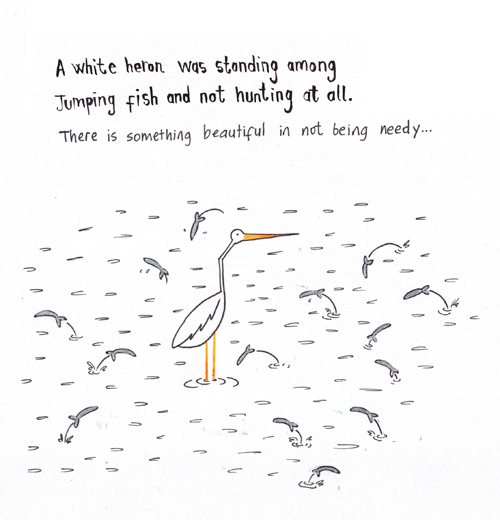 A white heron was standing among
Jumping fish and not hunting at all.
There is something beautiful in not being needy...